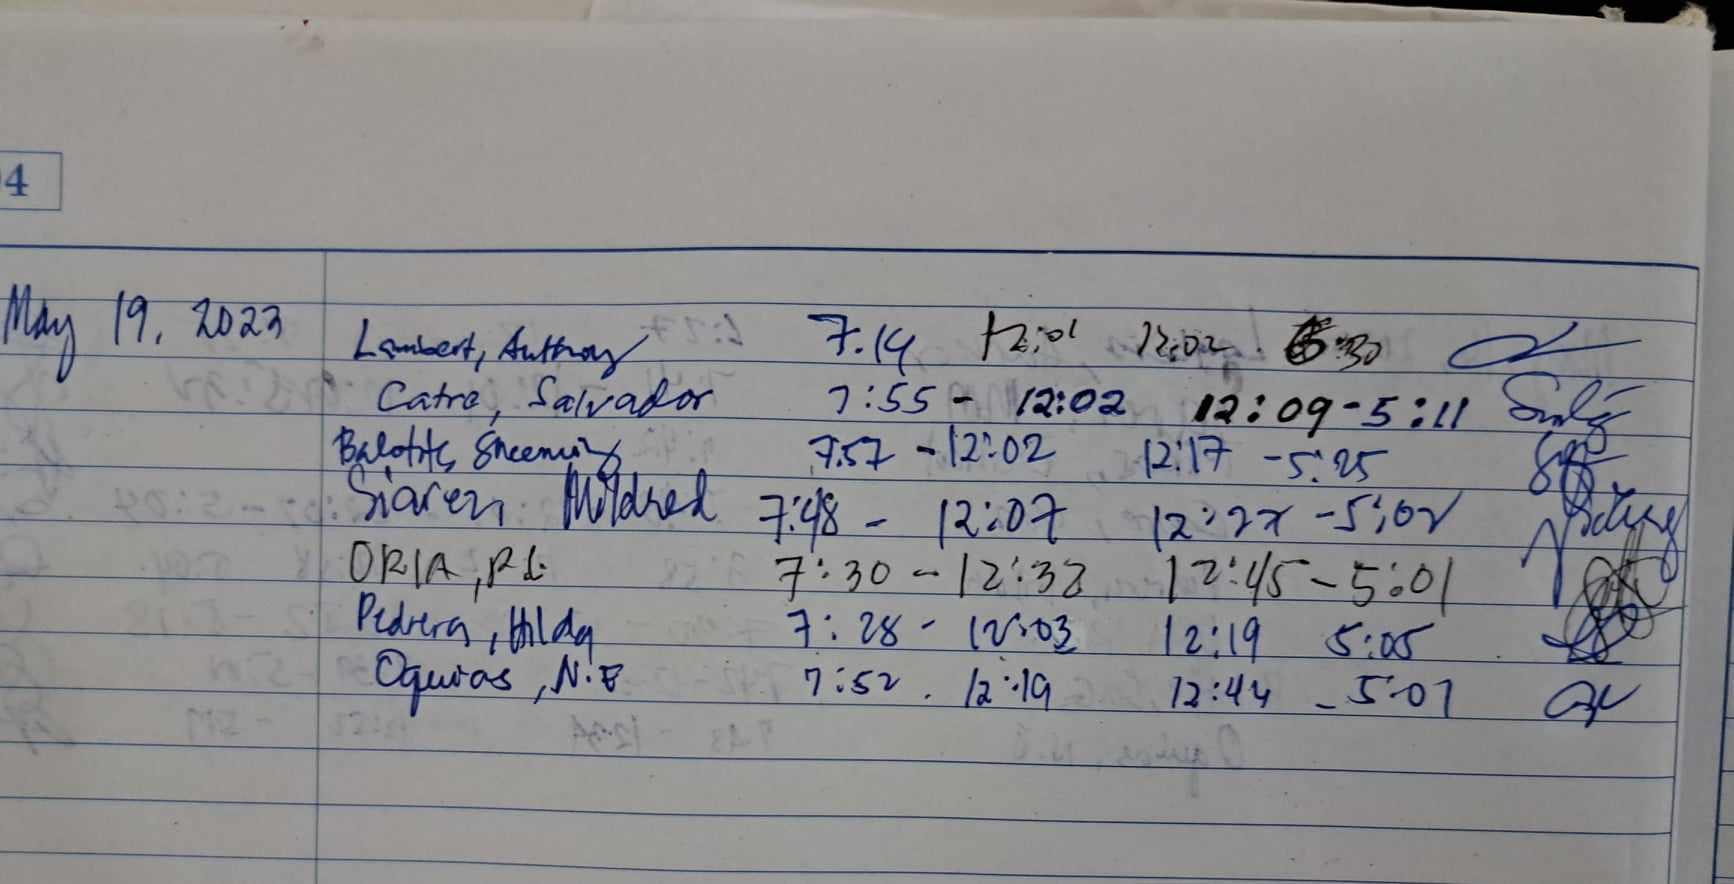 4
May 19, 2023
Lambert, Anthony 7.14 12:01 12:02 :30
Catre, Salvador 7:55 - 12:02 12:09 - 5:11
7:57 - 12:02 12:17 - 5:25
Siarez, Mildred 7:48 - 12:07 12:27 - 5:02
ORIA, P.L. 7:30 - 12:32 12:45 - 5:01
Pedrera, Hilda 7:28 - 12:03 12:19 5:05
Oquias, N.E 7:52 . 12:19 12:44 - 5:01